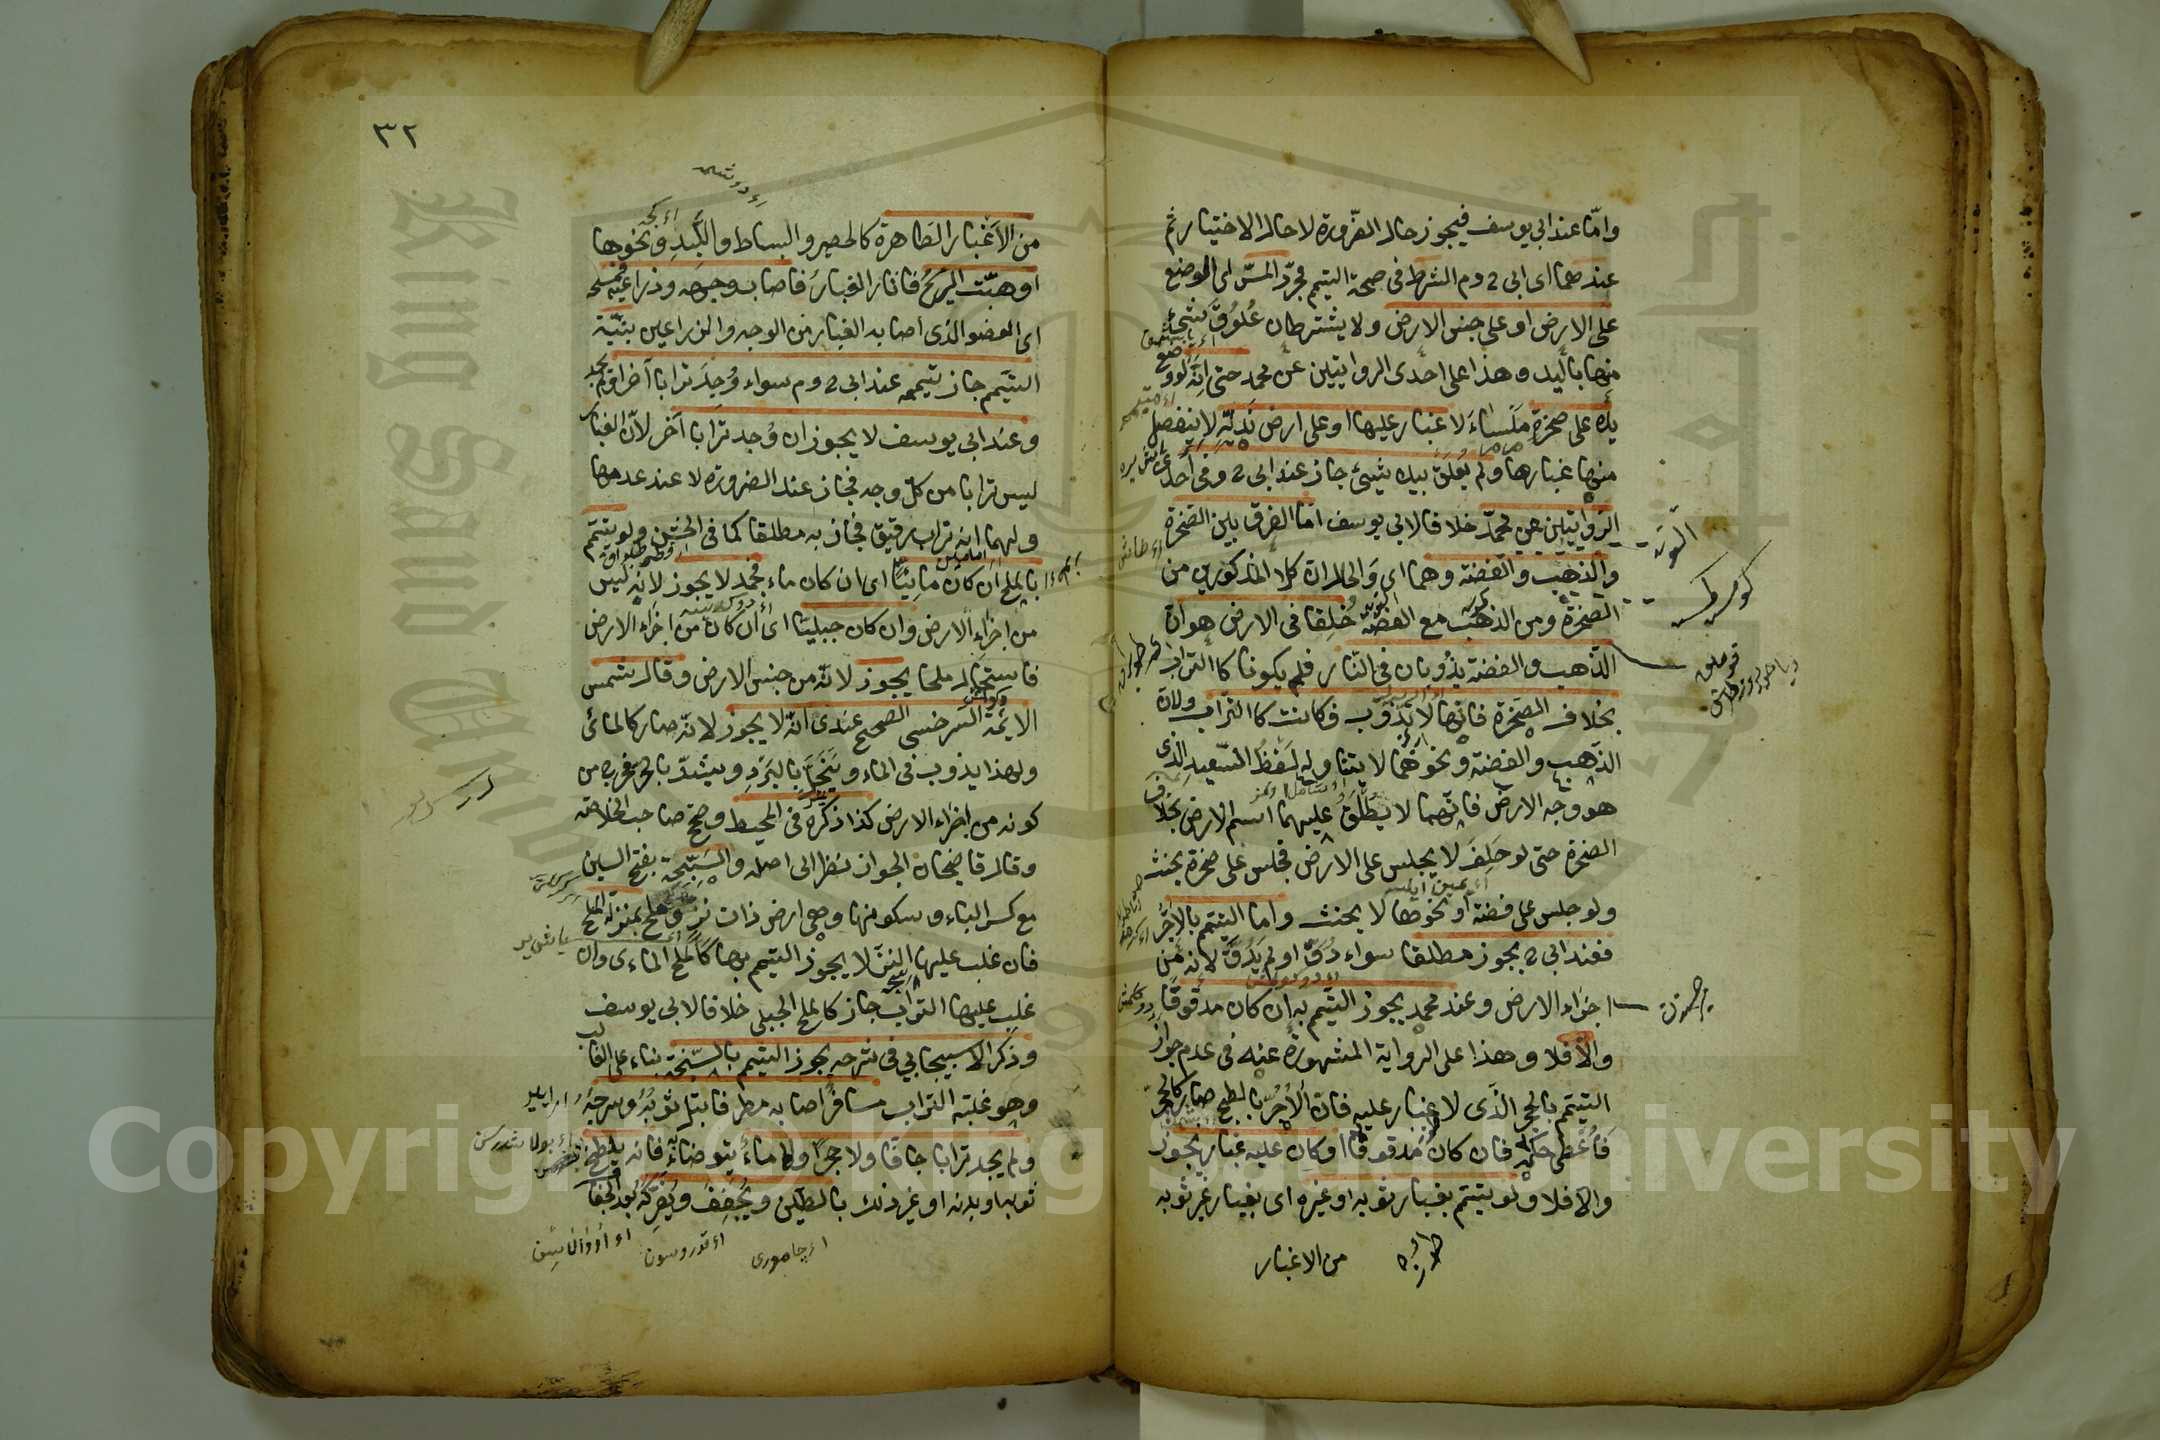 واما عند ابي يوسف فيجوز حال الضرورة لا حال الاختيار ثم
عندهما اى ابى ح وم الشرط فى صحة التيمم مجرد المس اى الوضع
على الارض او على جنس الارض ولا يشترطان علوق شئ
منها باليد وهذا على احدى الروايتين عن محمد حتى انه لو وضع
يده على صخرة ملساء لا غبار عليها او على ارض ندية لا ينفصل
منها غبارها ولم يعلق بيده شئ جاز عند ابى ح وفى احدى
الروايتين عن محمد خلافا لابى يوسف اما الفرق بين الصخرة
والذهب والفضة وهما اى والحال ان كلا المذكورين من
الصخرة ومن الذهب مع الفضة خلقا فى الارض هو ان
الذهب والفضة يذوبان فى النار فلم يكونا كالتراب
بخلاف الصخرة فانها لا تذوب فكانت كالتراب ولان
الذهب والفضة ونحوهما لا يتناوله لفظ الصعيد الذى
هو وجه الارض فانهما لا يطلق عليهما اسم الارض بخلاف
الصخرة حتى لو حلف لا يجلس على الارض فجلس على صخرة يحنث
ولو جلس على فضة او نحوها لا يحنث واما التيمم بالآجر
فعند ابى ح يجوز مطلقا سواء دق او لم يدق لانه من
اجزاء الارض وعند محمد يجوز التيمم به ان كان مدقوقا
والا فلا وهذا على الرواية المشهورة عنه فى عدم جواز
التيمم بالحجر الذى لا غبار عليه فان الآجر بالطبخ صار كالحجر
فاعطى حكمه فان كان مدقوقا او كان عليه غبار يجوز
والا فلا ولو تيمم بغبار ثوبه او غيره اى بغبار غير ثوبه
من الاغبار
٣٢
من الاغبار الطاهرة كالحصير والبساط واللبد ونحوها
او هبت الريح فاثار الغبار فاصاب وجهه وذراعيه فمسحه
اى العضو الذى اصابه الغبار من الوجه والذراعين بنية
التيمم جاز تيممه عند ابى ح وم سواء وجد ترابا آخر او لم يجد
وعند ابى يوسف لا يجوز ان وجد ترابا آخر لان الغبار
ليس ترابا من كل وجه فجاز عند الضرورة لا عند عدمها
ولهما انه تراب رقيق فجاز به مطلقا كما فى الخشن ولو تيمم
بالملح ان كان مائيا اى ان كان ماء فجمد لا يجوز لانه ليس
من اجزاء الارض وان كان جبليا اى ان كان من اجزاء الارض
فاستحال ملحا يجوز لانه من جنس الارض وقال شمس
الائمة السرخسى الصحيح عندى انه لا يجوز لانه صار كالمائى
ولهذا يذوب فى الماء وينحل بالبرد ويشتد بالحر فخرج من
كونه من اجزاء الارض كذا ذكره فى المحيط وصحح صاحب الخلاصة
وقال قاضيخان الجواز نظرا الى اصله والسبخة بفتح السين
مع كسر الباء وسكونها وهى ارض ذات نز وملح بمنزلة الملح
فان غلب عليها النز لا يجوز التيمم بها كالملح المائى وان
غلب عليها التراب جاز كالملح الجبلى خلافا لابى يوسف
وذكر الاسبيجابى فى شرحه يجوز التيمم بالسبخة بناء على الغالب
وهو غلبة التراب مسافر اصابه مطر فابتل ثوبه وسرجه
ولم يجد ترابا جافا ولا حجرا ولا ماء يتوضأ به فانه يلطخ
ثوبه او بدنه او غير ذلك بالطين ويجفف ويفركه بعد الجفاف